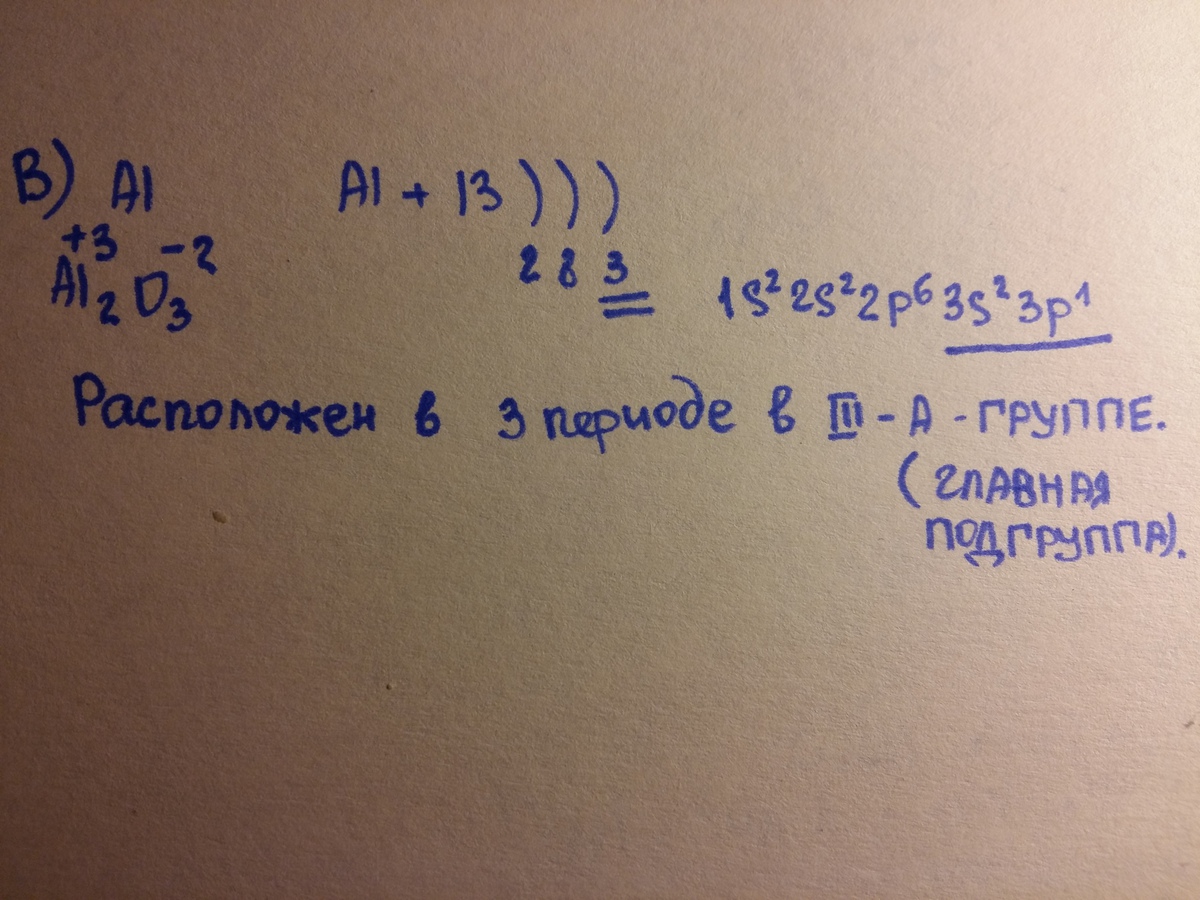 В) Al Al + 13 ) ) )
+3 -2
Al₂O₃ 2 8 3 1s²2s²2p⁶3s²3p¹
Расположен в 3 периоде в III - А - ГРУППЕ.
(ГЛАВНАЯ
ПОДГРУППА).